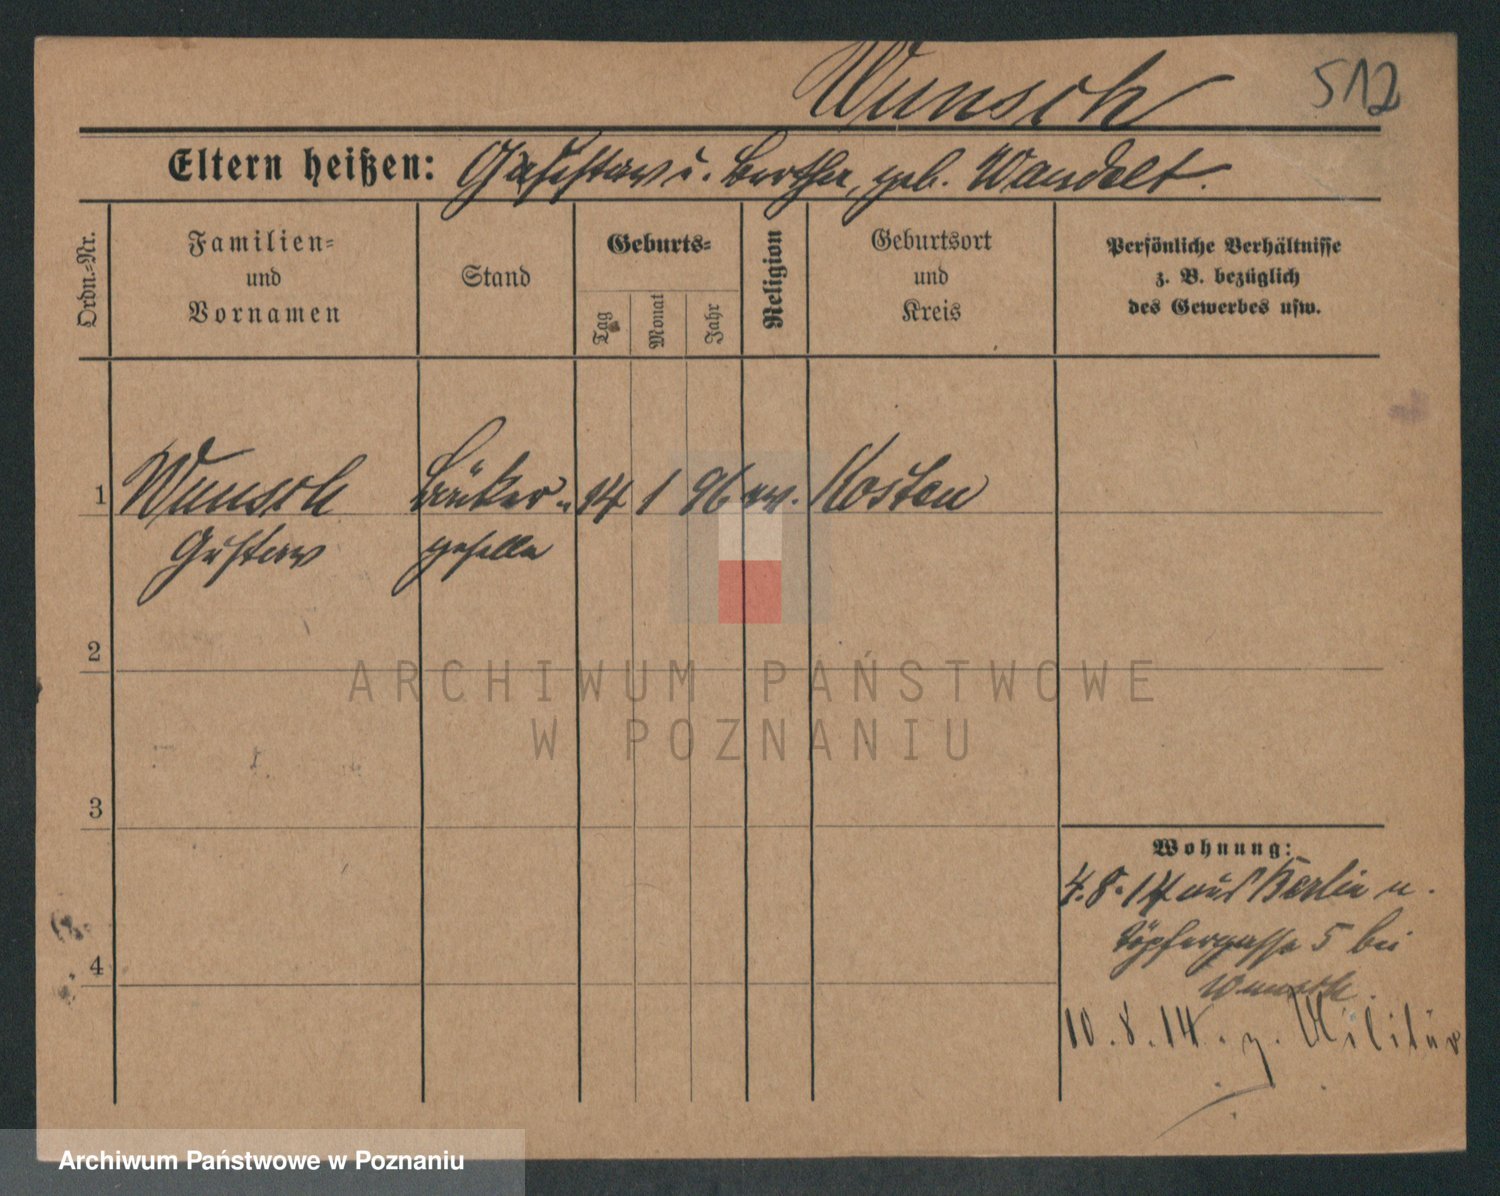 Wunsch
512
Eltern heißen: Gustav u. Bertha, geb. Wandelt.
Ordn.=Nr.
Familien=
und
Vornamen
Stand
Geburts=
Tag
Monat
Jahr
Religion
Geburtsort
und
Kreis
Persönliche Verhältnisse
z. B. bezüglich
des Gewerbes usw.
1 Wunsch Bäcker- 14 1 96 ev. Kosten
Gustav geselle
2
3
4
Wohnung:
4.8.14 aus Berlin n.
Töpfergasse 5 bei
Wunsch.
10.8.14. z. Militär
ARCHIWUM PAŃSTWOWE
W POZNANIU
Archiwum Państwowe w Poznaniu